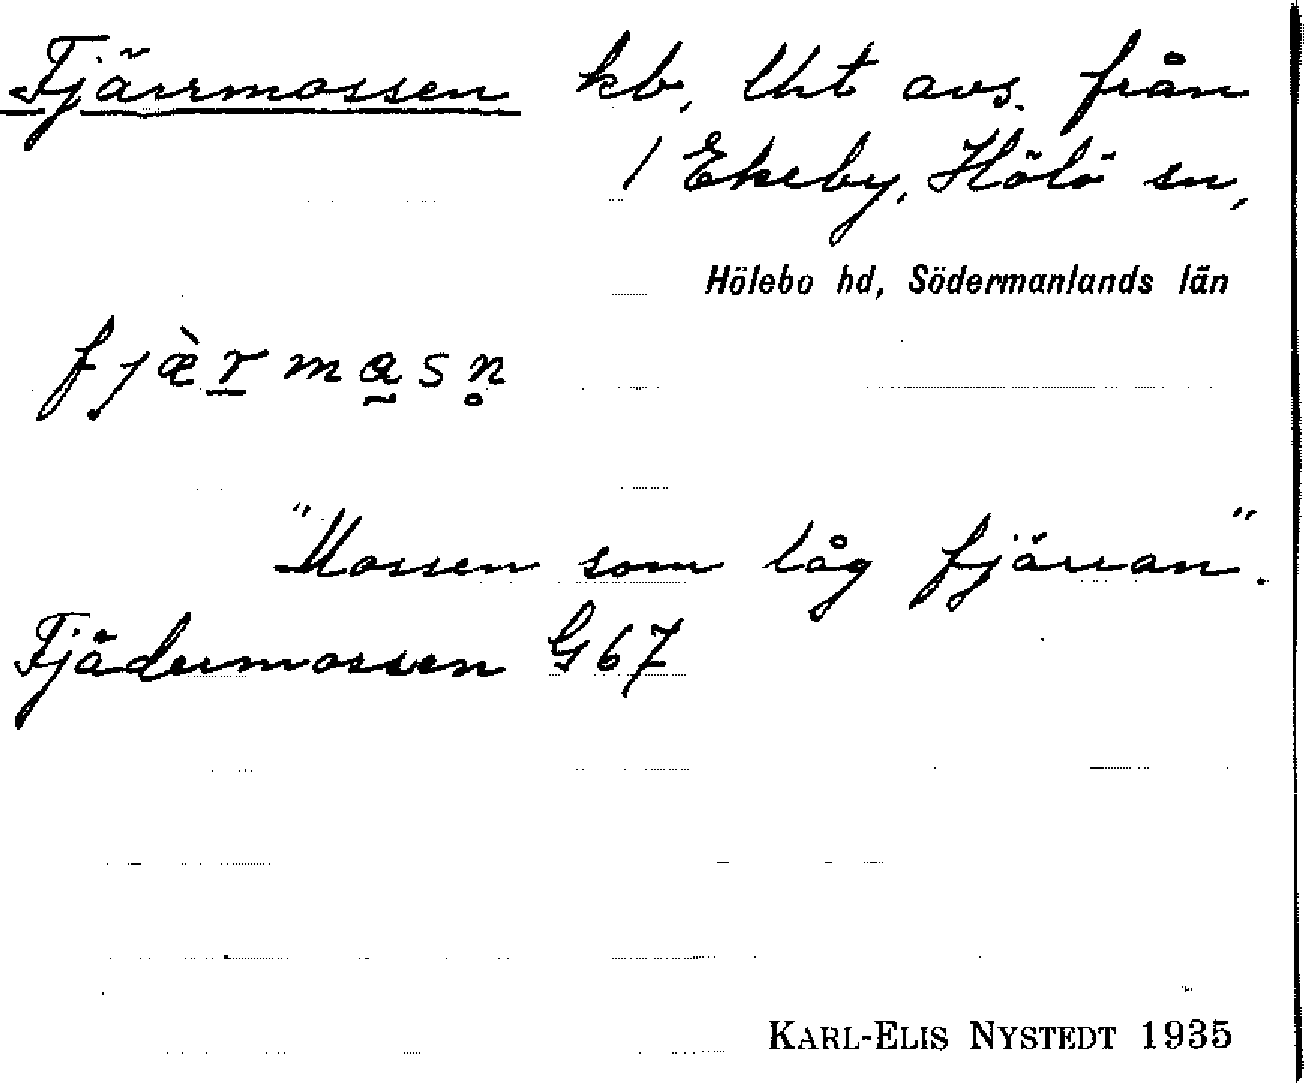 Fjärrmossen kb, lht avs. från
1 Ekeby, Hölö sn,
Hölebo hd, Södermanlands län
fjæ̀r̠ma̰sn̥
"Mossen som låg fjärran".
Fjädermossen G67
KARL-ELIS NYSTEDT 1935